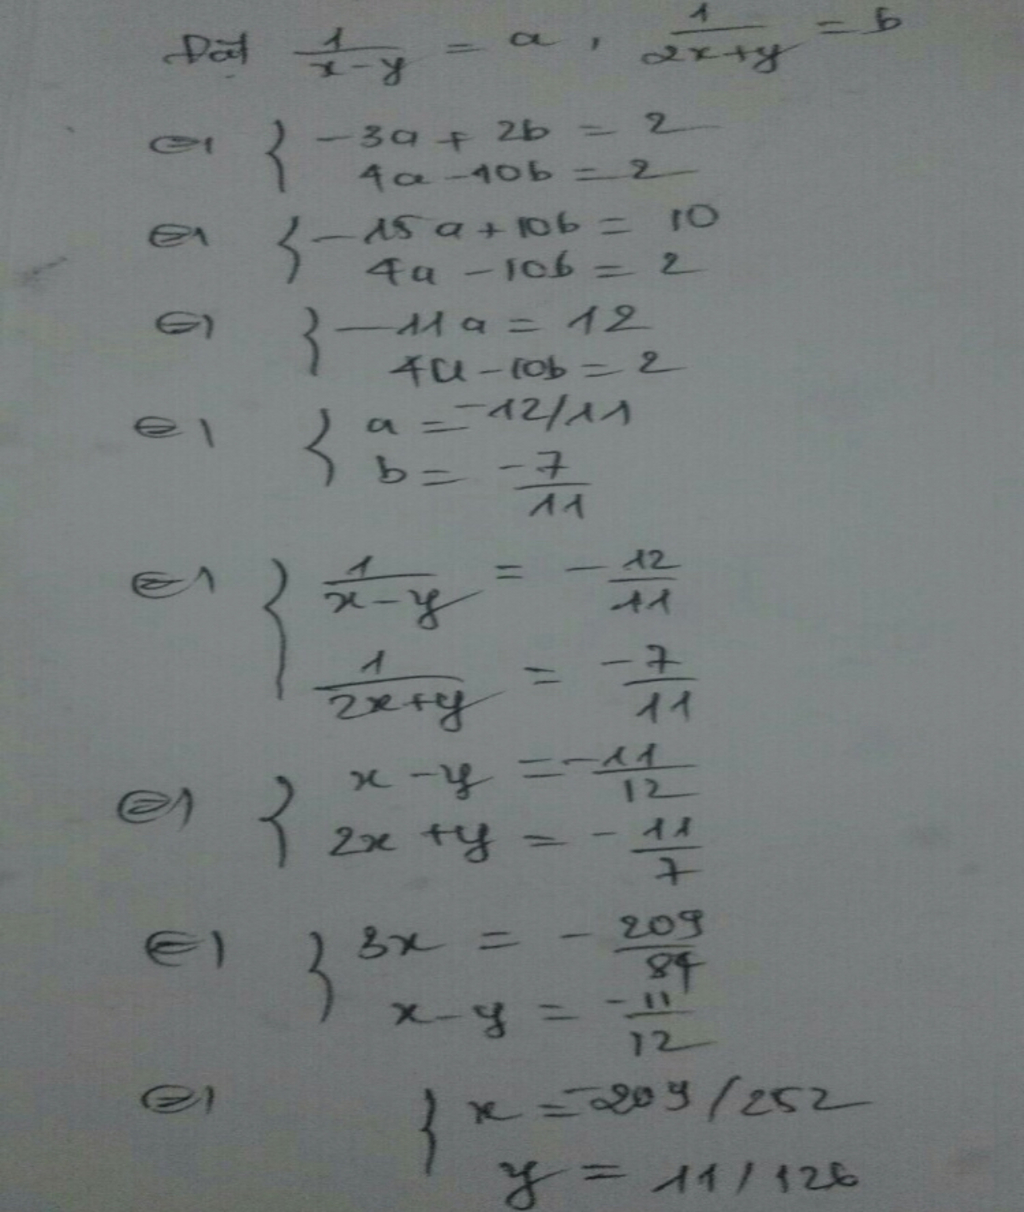 Đặt 1/(x-y) = a, 1/(2x+y) = b
⇔ { -3a + 2b = 2
4a - 10b = 2
⇔ { -15a + 10b = 10
4a - 10b = 2
⇔ { -11a = 12
4a - 10b = 2
⇔ { a = -12/11
b = -7/11
⇔ { 1/(x-y) = -12/11
1/(2x+y) = -7/11
⇔ { x - y = -11/12
2x + y = -11/7
⇔ { 3x = -209/84
x - y = -11/12
⇔ { x = -209/252
y = 11/126